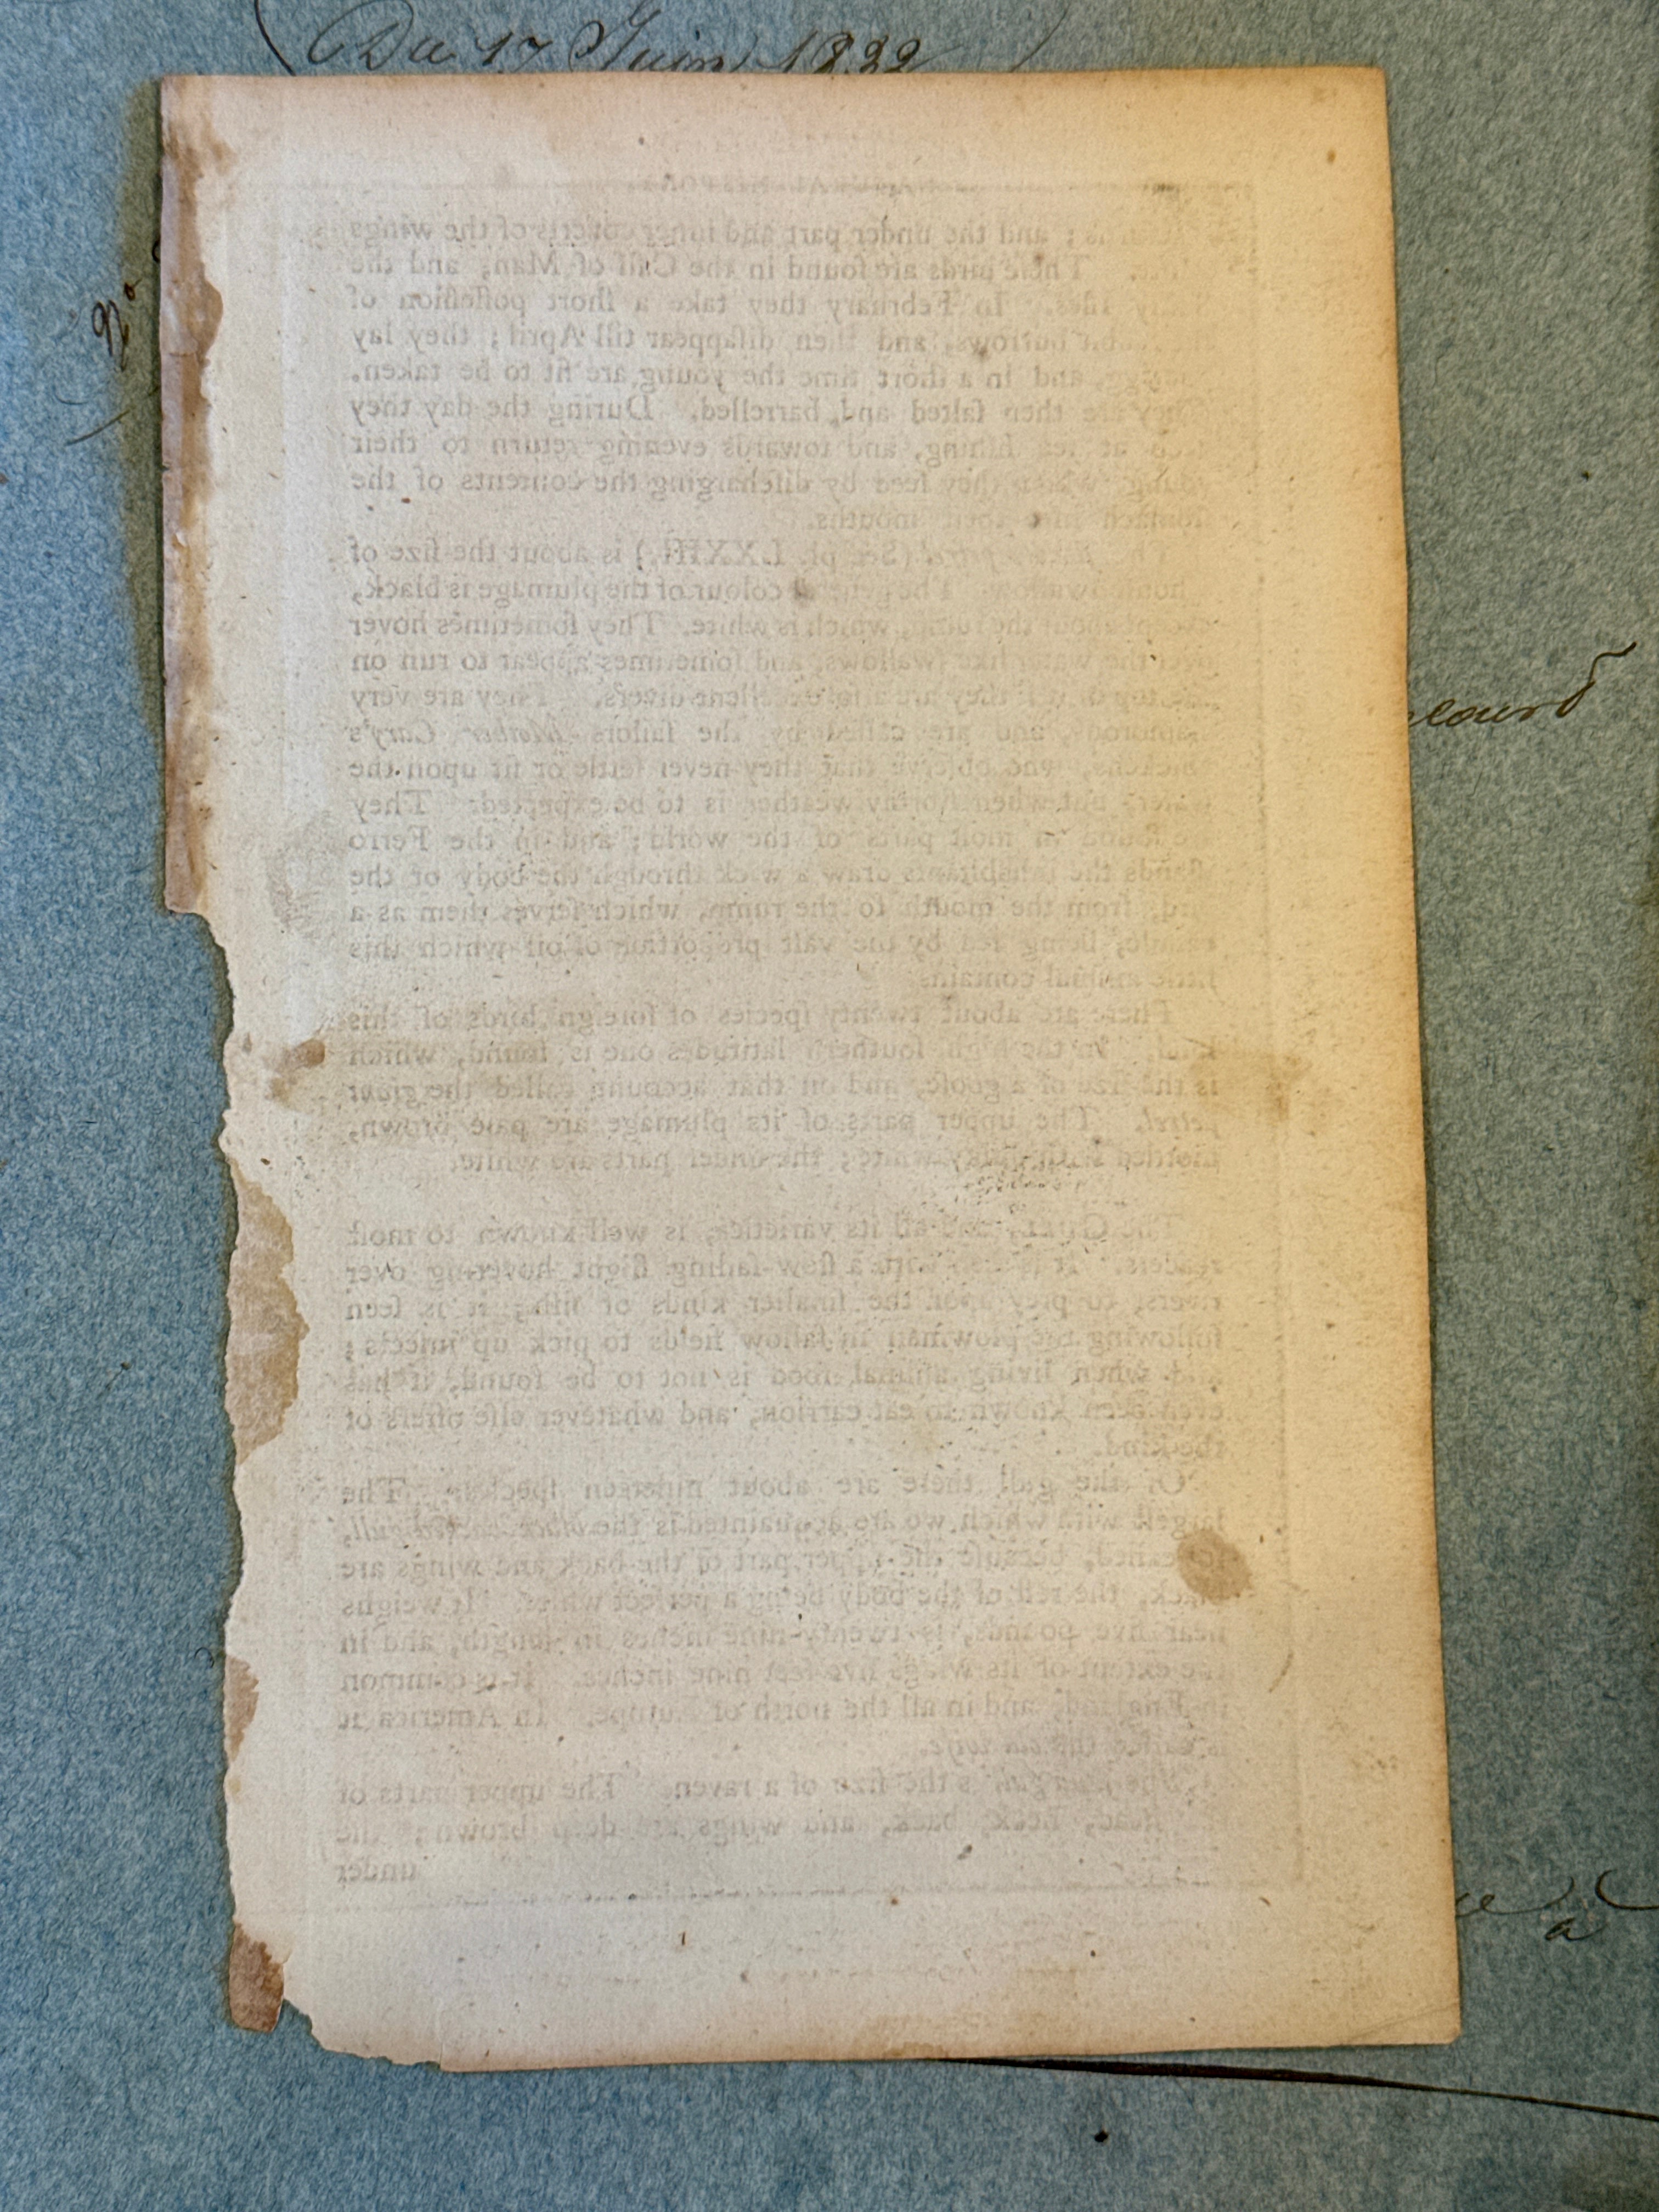 (Du 17 Juin 1822)
Nº
NATURAL HISTORY.
; and the under part and inner coverts of the wings
These birds are found in the Calf of Man; and the
Isles. In February they take a ſhort poſſeſſion of
burrows, and then diſappear till April; they lay
egg, and in a ſhort time the young are fit to be taken.
They are then ſalted and barrelled. During the day they
at ſea fiſhing, and towards evening return to their
young; whom they feed by diſcharging the contents of the
ſtomach into their mouths.
petrel (See pl. LXXIII.) is about the ſize of
ſwallow. The general colour of the plumage is black,
except about the rump, which is white. They ſometimes hover
over the water like ſwallows, and ſometimes appear to run on
top of it; they are alſo excellent divers. They are very
clamorous, and are called by the ſailors Mother Cary's
chickens, who obſerve that they never ſettle or ſit upon the
water but when ſtormy weather is to be expected. They
are found in moſt parts of the world; and in the Ferro
iſlands the inhabitants draw a wick through the body of the
bird, from the mouth to the rump, which ſerves them as a
candle, being fed by the vaſt proportion of oil which this
little animal contains.
There are about twenty ſpecies of foreign birds of this
kind. In the high ſouthern latitudes one is found, which
is the ſize of a gooſe, and on that account called the giant
petrel. The upper parts of its plumage are pale brown,
mottled with duſky white; the under parts are white.
The GULL, and all its varieties, is well known to moſt
readers. It is ſeen with a ſlow-ſailing flight hovering over
rivers, to prey upon the ſmaller kinds of fiſh; it is ſeen
following the plowman in fallow fields to pick up inſects;
and when living animal food is not to be found, it has
even been known to eat carrion, and whatever elſe offers of
the kind.
Of the gull there are about nineteen ſpecies. The
largeſt with which we are acquainted is the black-backed gull,
ſo named, becauſe the upper part of the back and wings are
black, the reſt of the body being a perfect white. It weighs
near five pounds, is twenty-nine inches in length, and in
the extent of its wings five feet nine inches. It is common
in England, and in all the north of Europe. In America it
is called the old wife.
is the ſize of a raven. The upper parts of
head, neck, back, and wings are deep brown; the
under